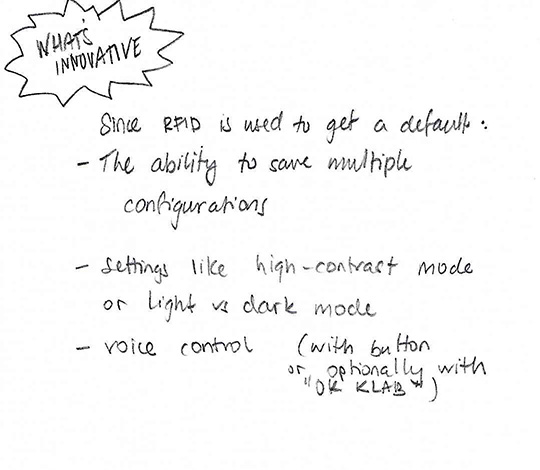 WHAT'S
INNOVATIVE
Since RFID is used to get a default:
- The ability to save multiple
configurations
- settings like high-contrast mode
or light vs dark mode
- voice control (with button
or optionally with
"OK KLAB")